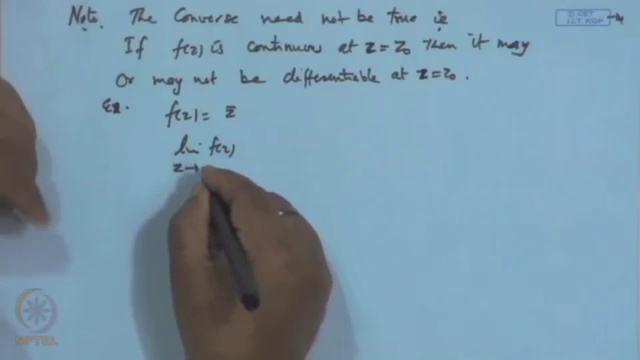 Note. The Converse need not be true ie
If f(z) is continuous at z = z₀ then it may
Or may not be differentiable at z = z₀.
Ex. f(z) = z̄
lim f(z)
z→
© CET
I.I.T. KGP
NPTEL